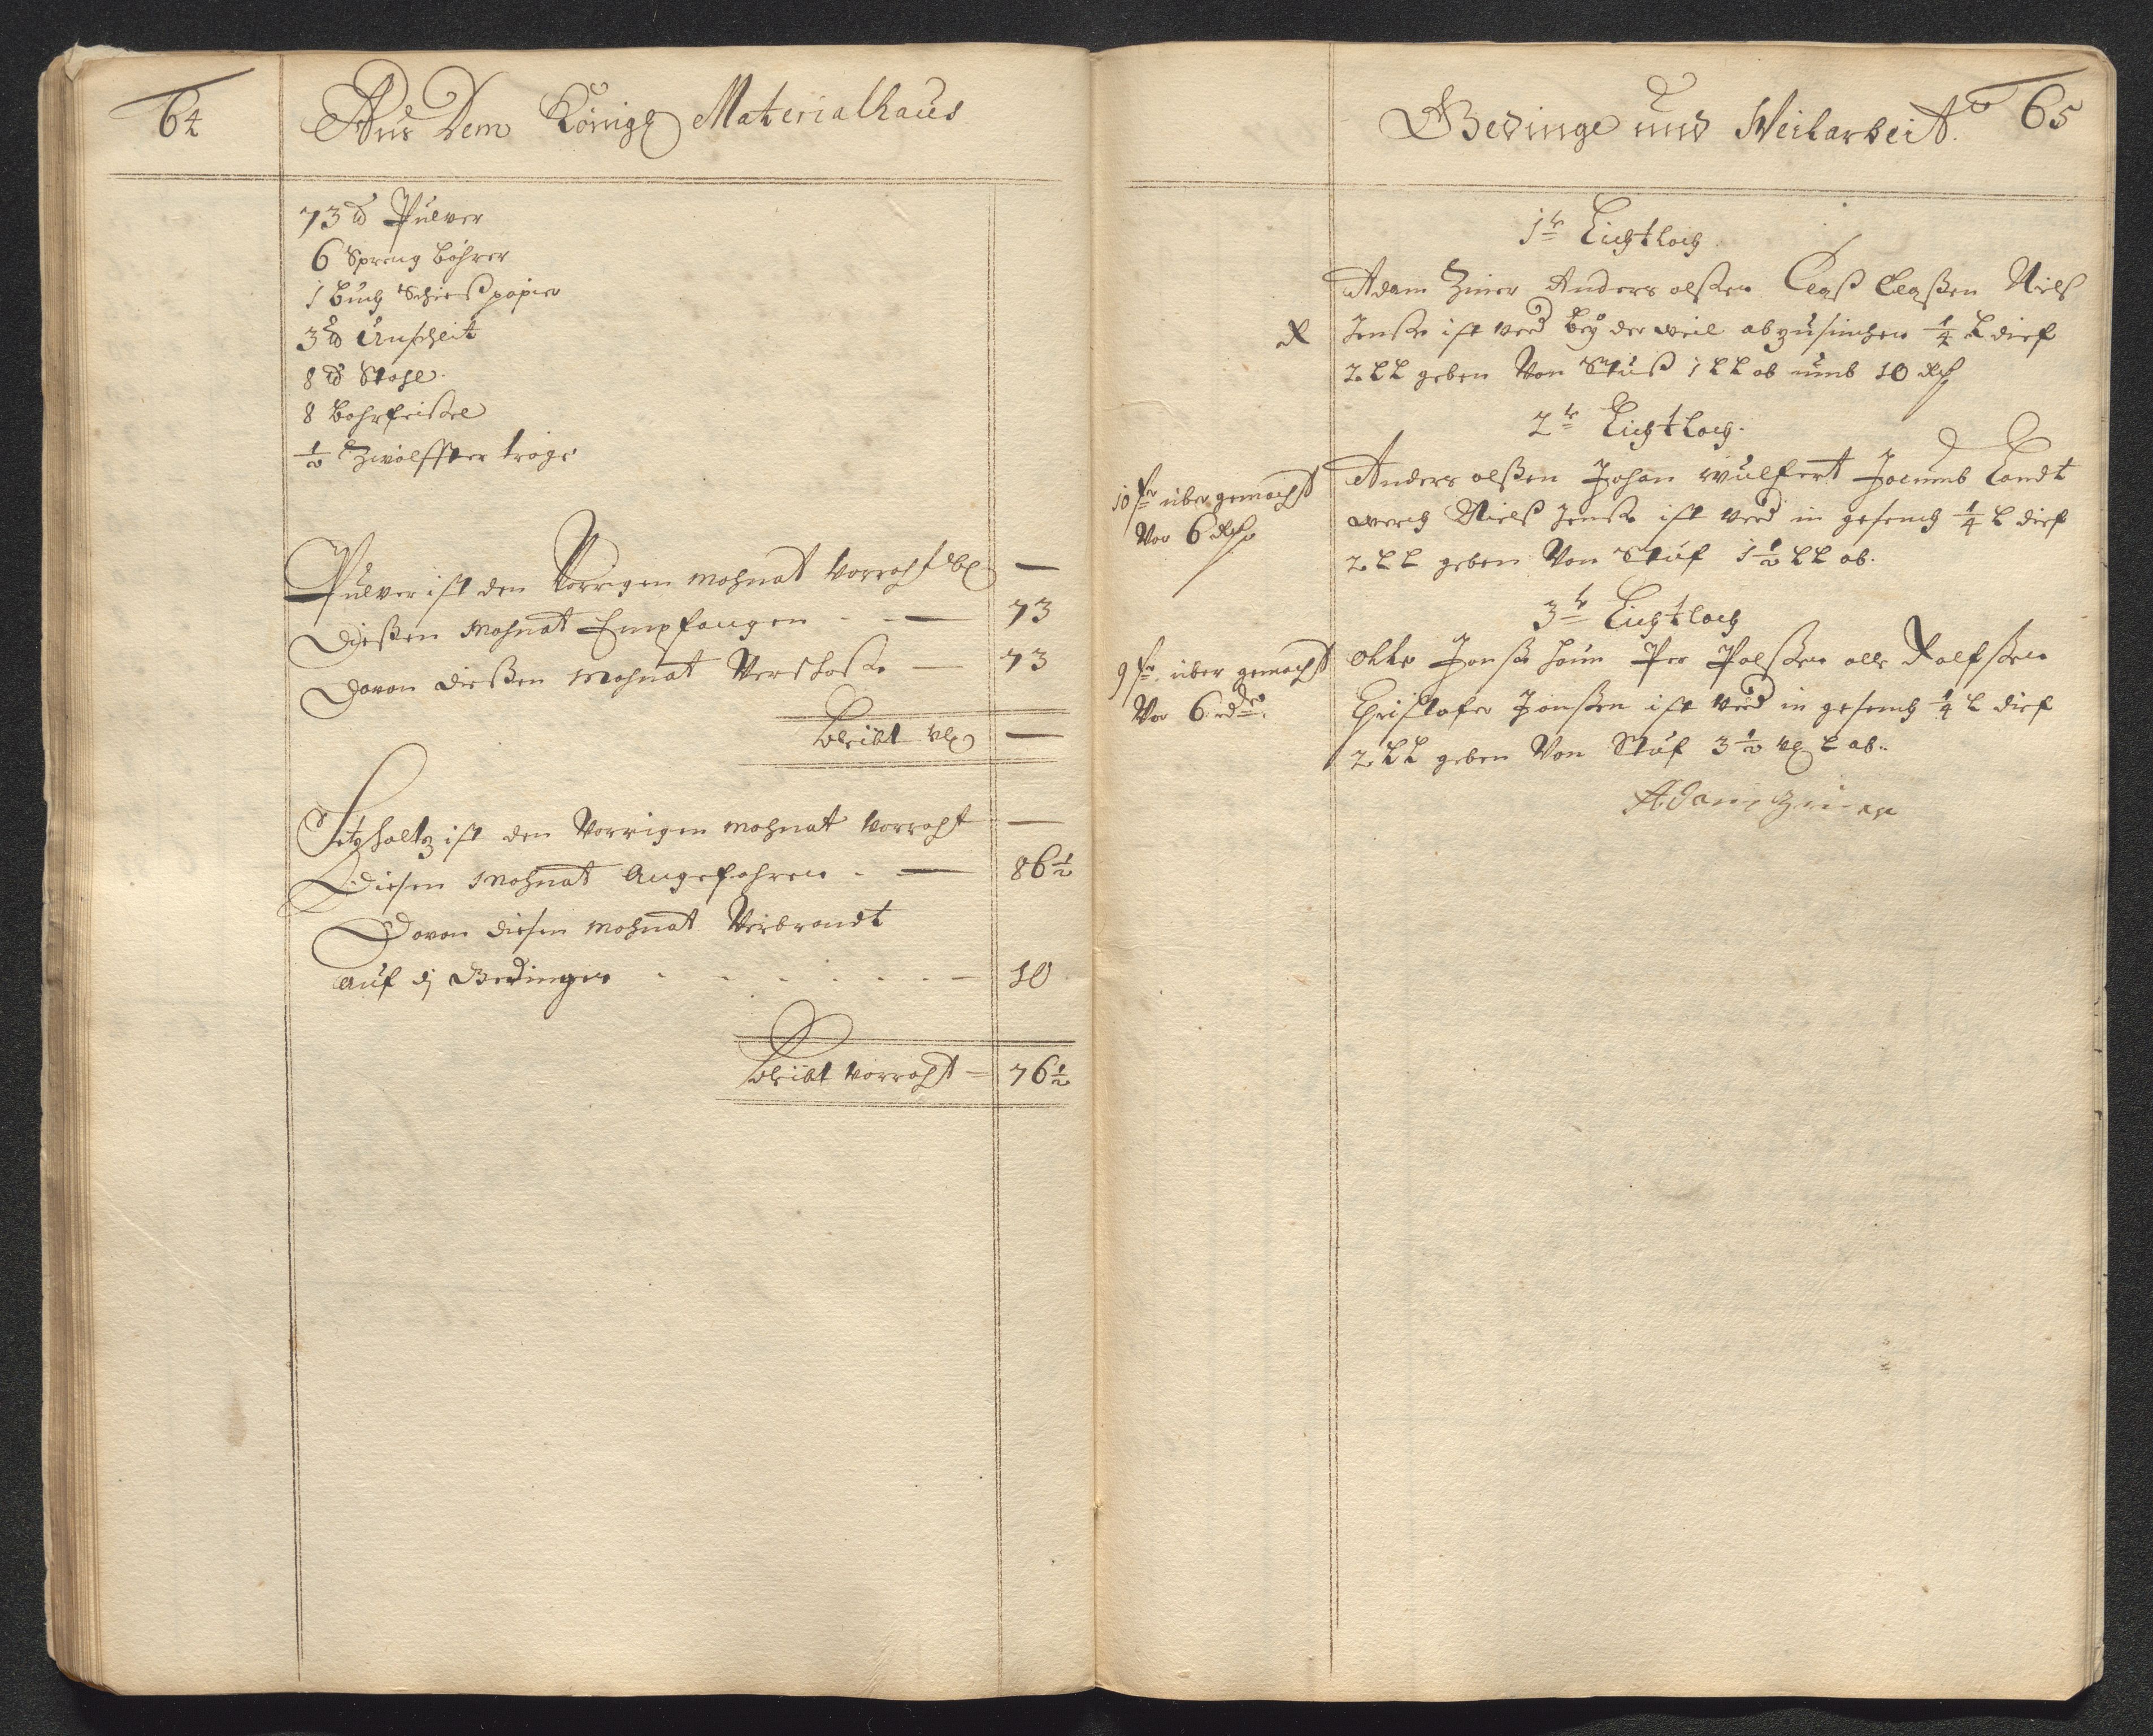 64
Aus Dem Königl Materialhaus
73 ℔ Pulver
6 Spreng böhrer
1 buch Schieß papier
3 ℔ Unschleit
8 ℔ Stahl
8 bohrfeistel
½ Zwölffter tröge
Pulver ist den Vorrigen mohnat vorraht —
Dießen Mohnat Empfangen - — 73
Davon dießen Mohnat Verschoße — 73
bleibt —
Setzholtz ist den Vorrigen mohnat vorraht —
Diesen Mohnat Angefahren - — 86½
Davon diesen mohnat Verbrandt
auf di Bedinger - - - - - — 10
bleibt vorraht — 76½
Bedinge und Weilarbeit. 65
1te Lichtloch
Adam Ziner Anders olßen Claß Claßen Niels
Jenße ist verd bey der weil abzusincken ¼ L dief
2 LL geben Von Stuß 1 LL ab umb 10
2te Lichtloch.
10 über gemacht
Vor 6
Anders olßen Johan wulfert Jacumb Landt
werch Niels Jenße ist verd in gesench ¼ L dief
2 LL geben Von Stuf 1½ LL ab.
3te Lichtloch
9 über gemacht
Vor 6
olle Jonße Per Polßen olle Rolfßen
Christofer Jonßen ist verd in gesench ¼ L dief
2 LL geben Von Stuf 3½ L ab.
Adam Ziener